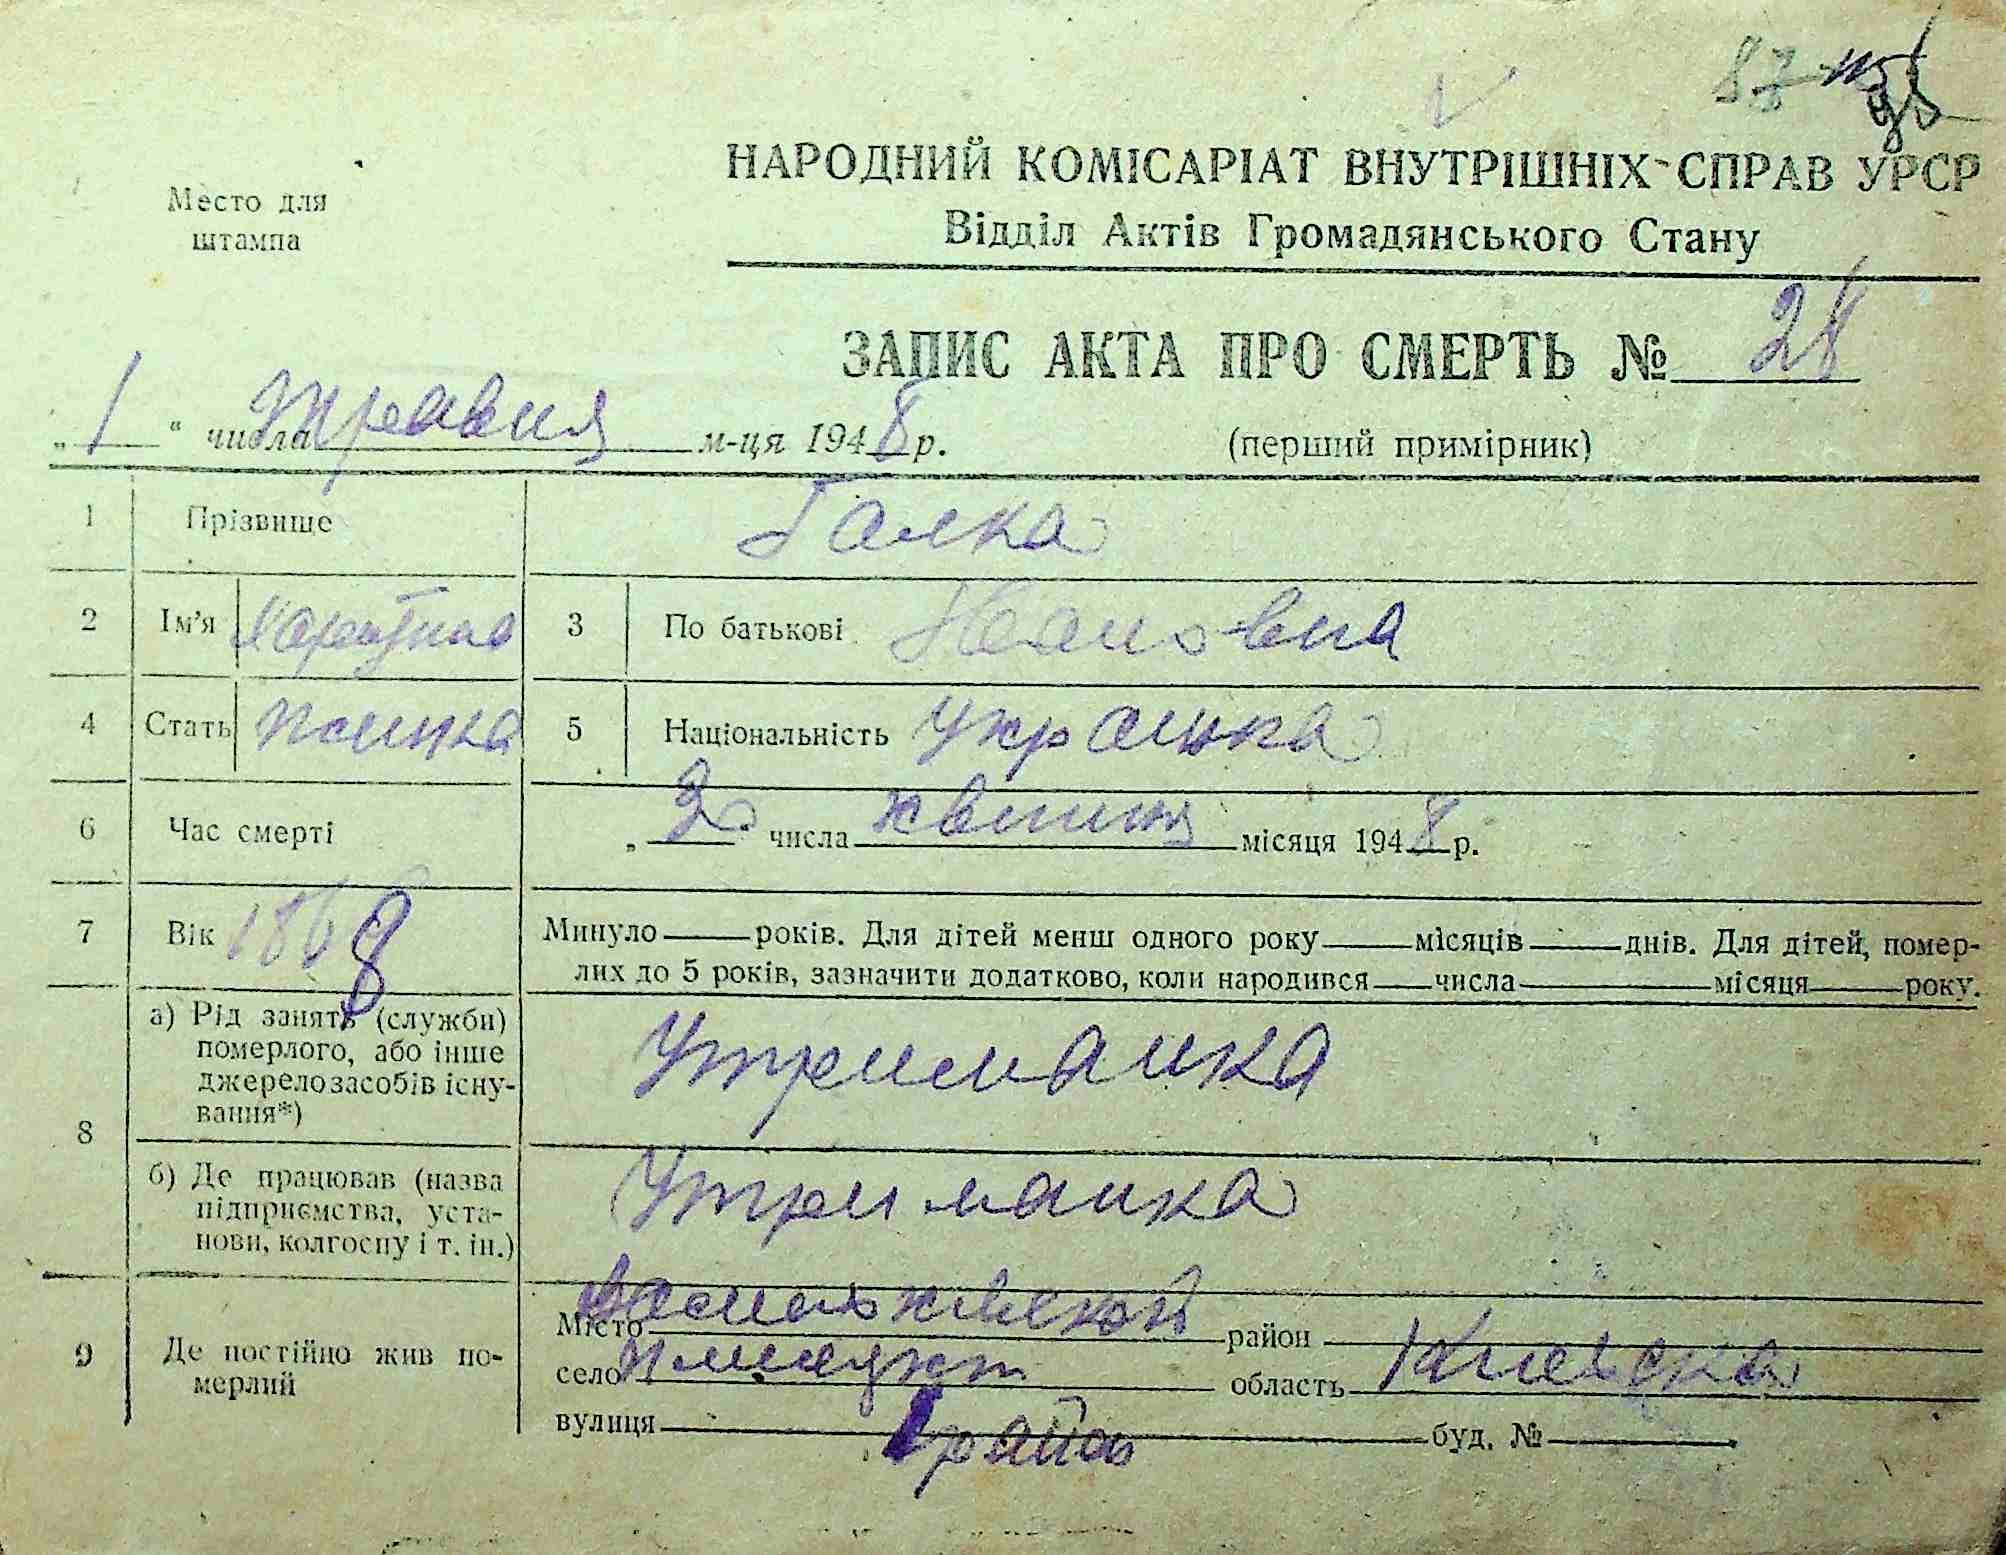 87
НАРОДНИЙ КОМІСАРІАТ ВНУТРІШНІХ СПРАВ УРСР
Відділ Актів Громадянського Стану
Место для
штампа
ЗАПИС АКТА ПРО СМЕРТЬ № 28
„ 1 “ числа травня м-ця 1948 р.
(перший примірник)
1 Прізвище Галка
2 Ім'я 3 По батькові Івановна
4 Стать жінка 5 Національність украінка
6 Час смерті „ числа квітня місяця 1948 р.
7 Вік Минуло років. Для дітей менш одного року місяців днів. Для дітей, помер-
лих до 5 років, зазначити додатково, коли народився числа місяця року.
8 а) Рід занять (служби)
померлого, або інше
джерело засобів існу-
вання*)
Утриманка
б) Де працював (назва
підприємства, уста-
нови, колгоспу і т. ін.)
Утриманка
9 Де постійно жив по-
мерлий
Місто район
село область Киевска
вулиця буд. №